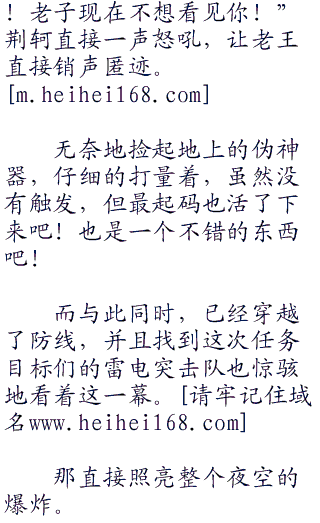 ！老子现在不想看见你！”
荆轲直接一声怒吼，让老王
直接销声匿迹。
[m.heihei168.com]
无奈地捡起地上的伪神
器，仔细的打量着，虽然没
有触发，但最起码也活了下
来吧！也是一个不错的东西
吧！
而与此同时，已经穿越
了防线，并且找到这次任务
目标们的雷电突击队也惊骇
地看着这一幕。[请牢记住域
名www.heihei168.com]
那直接照亮整个夜空的
爆炸。